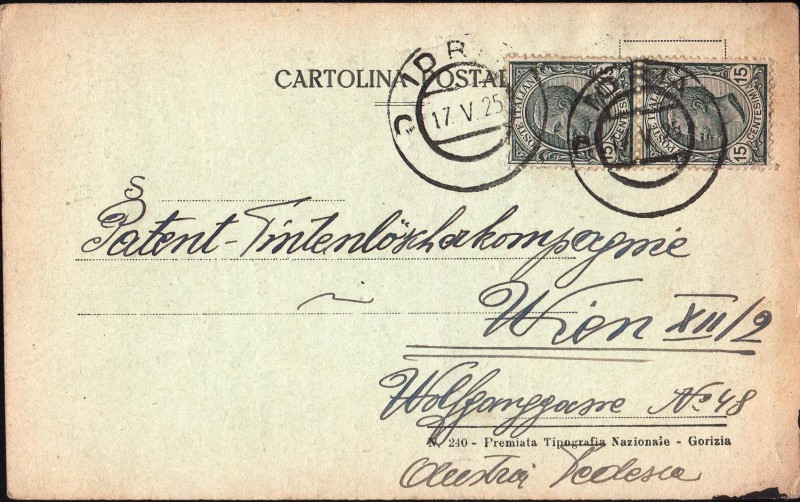 CARTOLINA POSTAL
IDR
17. V. 25
POSTE ITALIANE
15 CENTESIMI 15
POSTE ITALIANE
15 CENTESIMI 15
Š
Patent-Tintenlöscherkompagnie
Wien XII/2
Wolfganggasse No 48
N. 240 - Premiata Tipografia Nazionale - Gorizia
Austria Tedesca